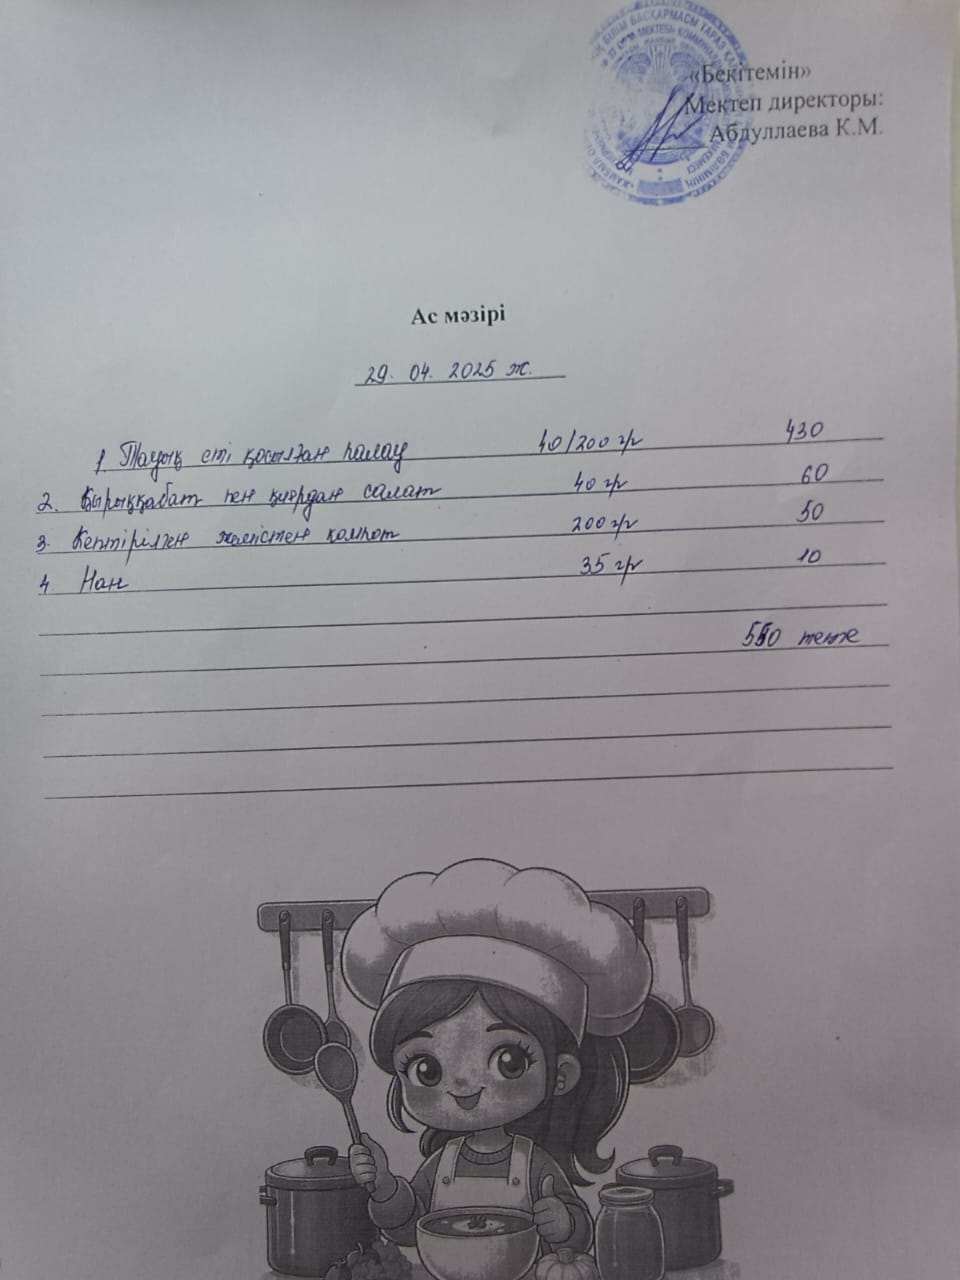 БІЛІМ БАСҚАРМАСЫ ТАРАЗ
«Бекітемін»
Мектеп директоры:
Абдуллаева К.М.
Ас мәзірі
29. 04. 2025 ж.
1. Тауық еті қосылған палау 40/200 гр 430
2. Қырыққабат пен қиярдан салат 40 гр 60
3. Кептірілген жемістен компот 200 гр 50
4. Нан 35 гр 10
550 теңге